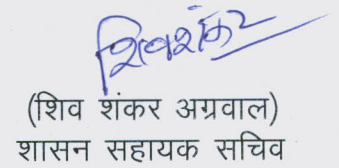 शिवशंकर
(शिव शंकर अग्रवाल)
शासन सहायक सचिव